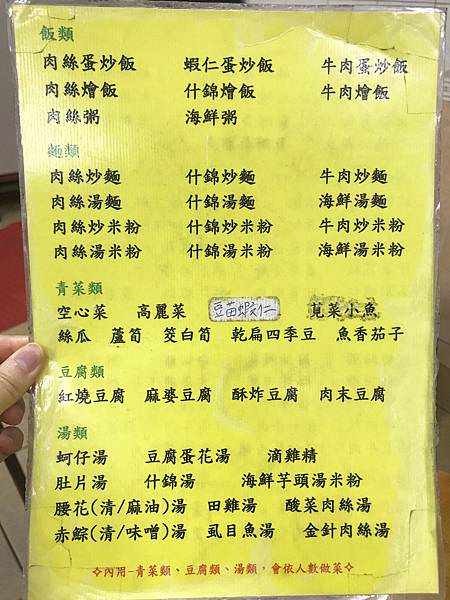 飯類
肉絲蛋炒飯 蝦仁蛋炒飯 牛肉蛋炒飯
肉絲燴飯 什錦燴飯 牛肉燴飯
肉絲粥 海鮮粥
麵類
肉絲炒麵 什錦炒麵 牛肉炒麵
肉絲湯麵 什錦湯麵 海鮮湯麵
肉絲炒米粉 什錦炒米粉 牛肉炒米粉
肉絲湯米粉 什錦湯米粉 海鮮湯米粉
青菜類
空心菜 高麗菜 豆苗蝦仁 莧菜小魚
絲瓜 蘆筍 筊白筍 乾扁四季豆 魚香茄子
豆腐類
紅燒豆腐 麻婆豆腐 酥炸豆腐 肉末豆腐
湯類
蚵仔湯 豆腐蛋花湯 滴雞精
肚片湯 什錦湯 海鮮芋頭湯米粉
腰花(清/麻油)湯 田雞湯 酸菜肉絲湯
赤鯮(清/味噌)湯 虱目魚湯 金針肉絲湯
✧內用-青菜類、豆腐類、湯類，會依人數做菜✧